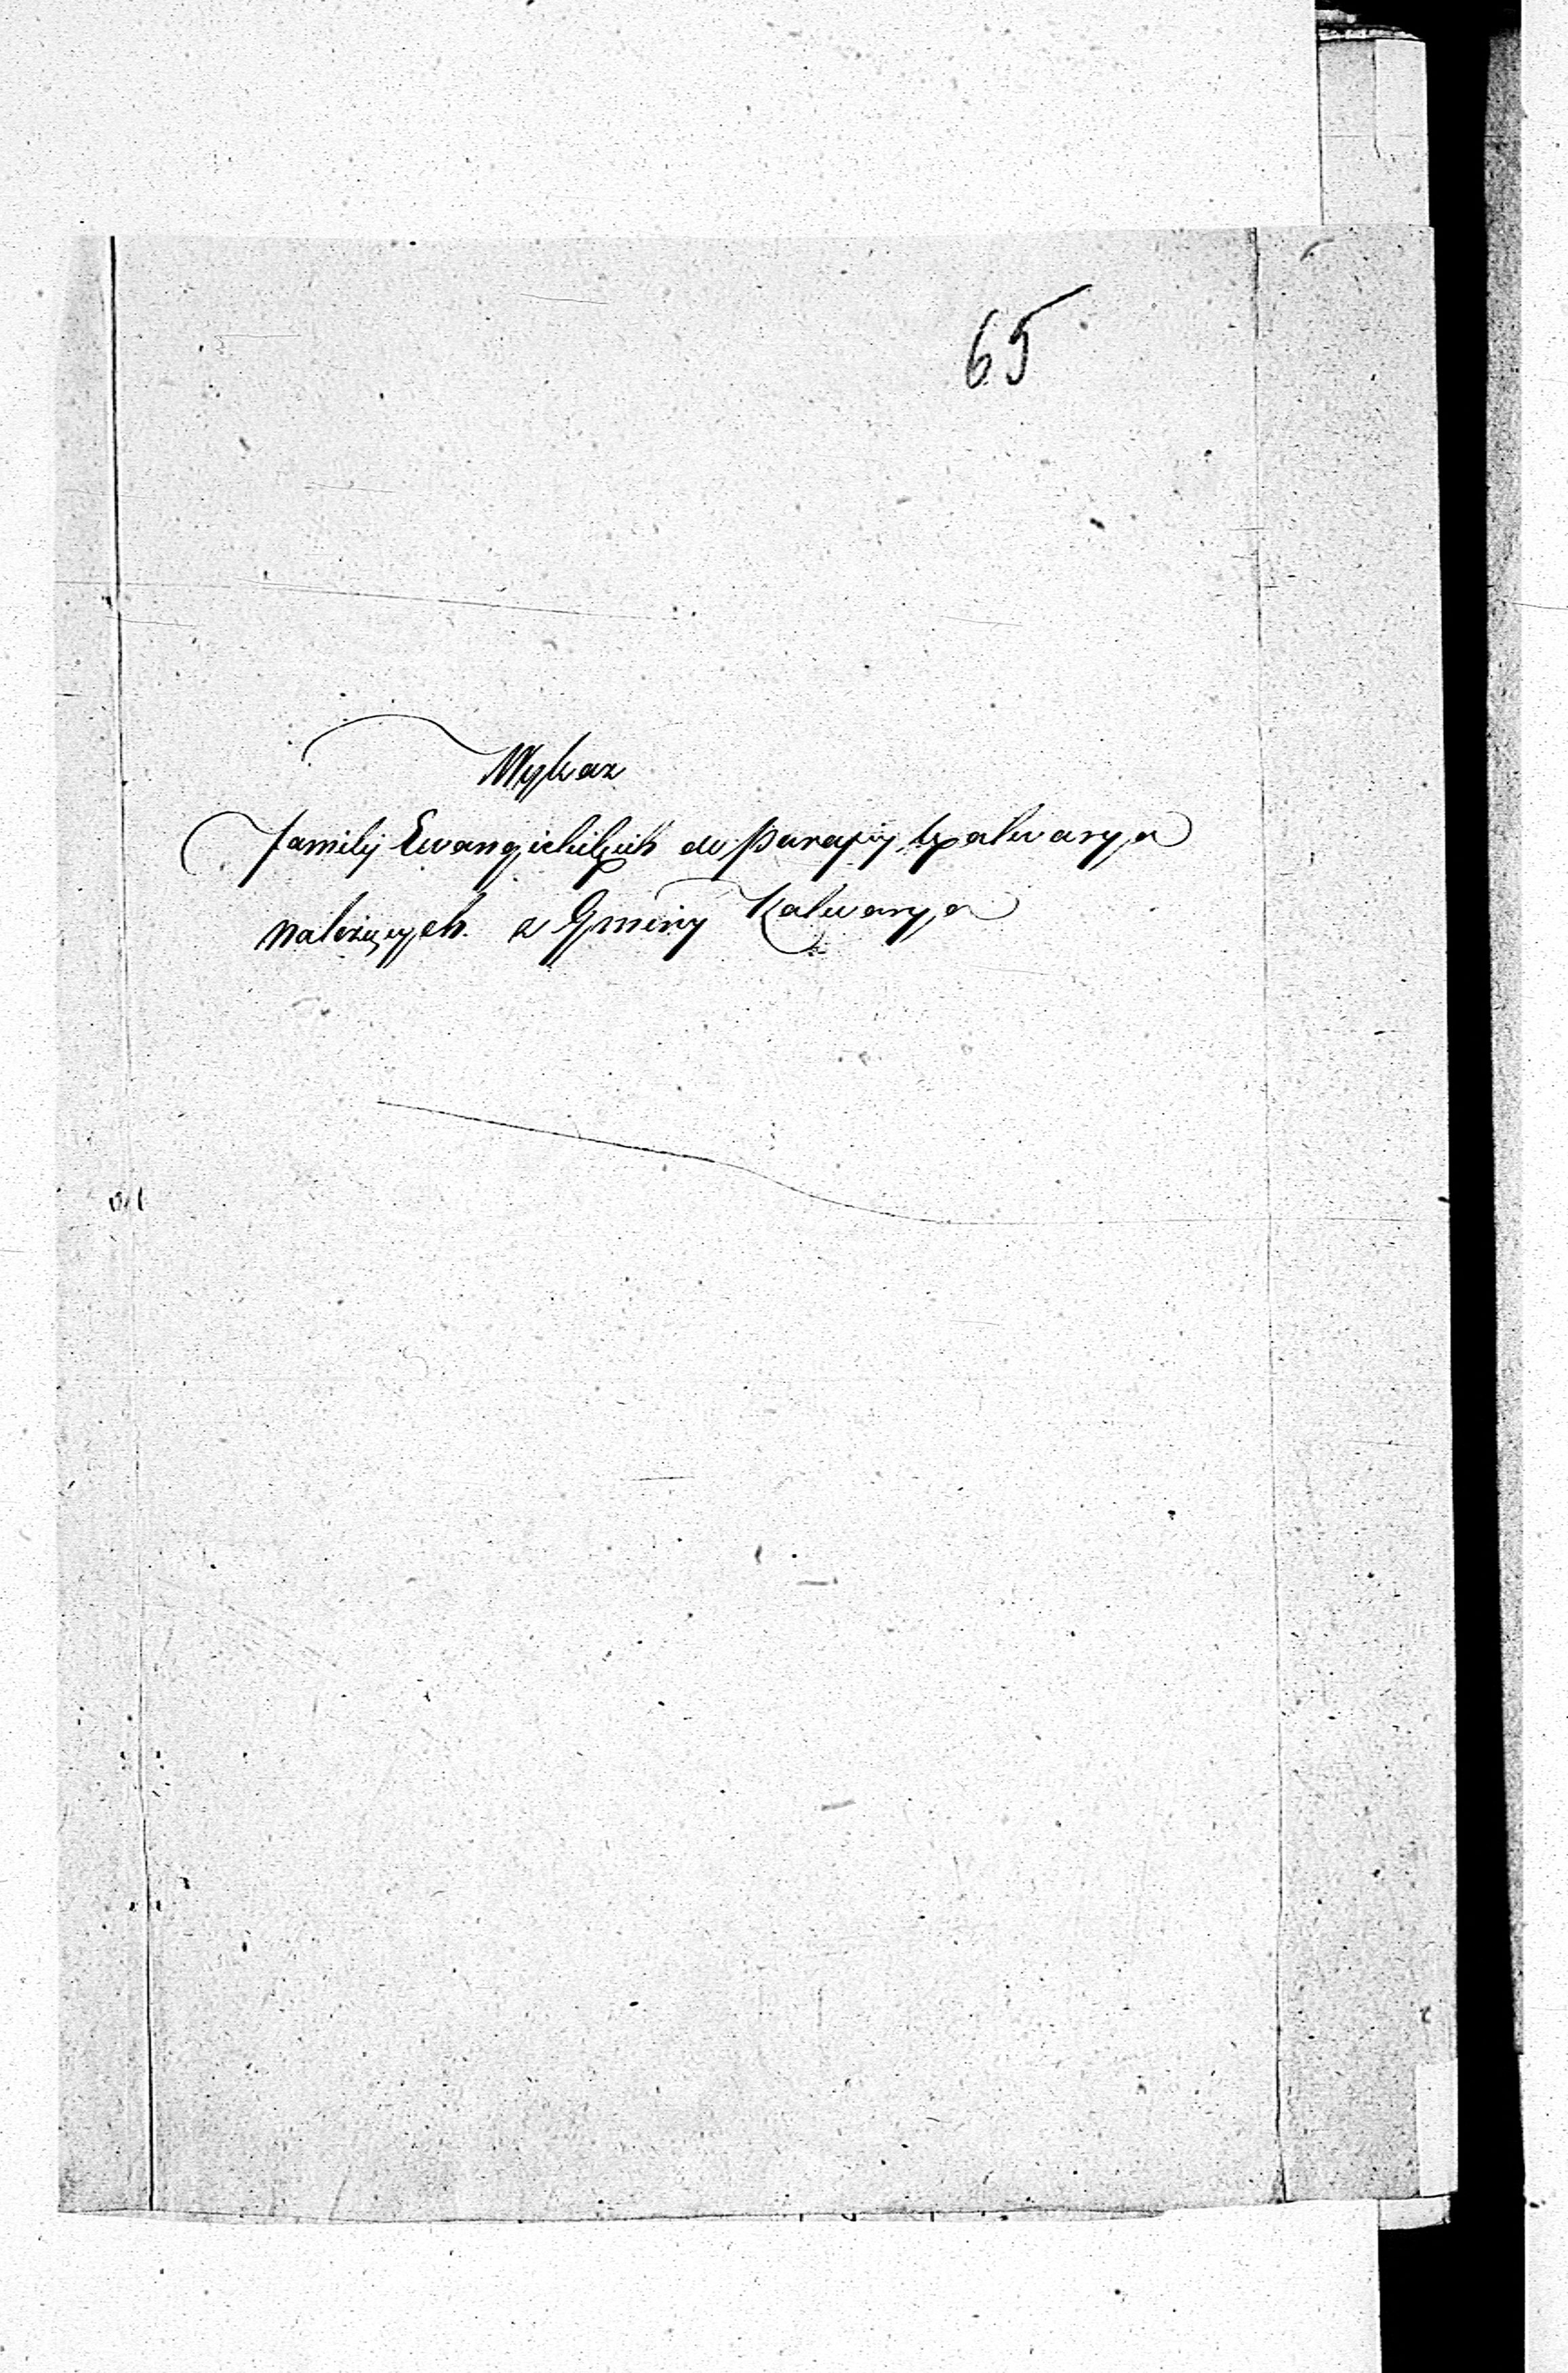 65
Wykaz
familij Ewangielickich do Parafij Kalwarya
należących z Gminy Kalwarya